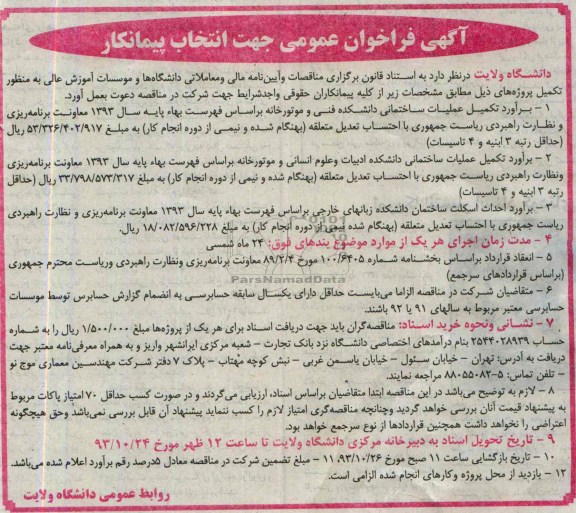 آگهی فراخوان عمومی جهت انتخاب پیمانکار
دانشگاه ولایت درنظر دارد به استناد قانون برگزاری مناقصات وآیین‌نامه مالی ومعاملاتی دانشگاه‌ها و موسسات آموزش عالی به منظور
تکمیل پروژه‌های ذیل مطابق مشخصات زیر از کلیه پیمانکاران حقوقی واجدشرایط جهت شرکت در مناقصه دعوت بعمل آورد.
۱ - برآورد تکمیل عملیات ساختمانی دانشکده فنی و موتورخانه براساس فهرست بهاء پایه سال ۱۳۹۳ معاونت برنامه‌ریزی
و نظارت راهبردی ریاست جمهوری با احتساب تعدیل متعلقه (بهنگام شده و نیمی از دوره انجام کار) به مبلغ ۵۳/۳۲۶/۴۰۲/۹۱۷ ریال
(حداقل رتبه ۳ ابنیه و ۴ تاسیسات)
۲ - برآورد تکمیل عملیات ساختمانی دانشکده ادبیات وعلوم انسانی و موتورخانه براساس فهرست بهاء پایه سال ۱۳۹۳ معاونت برنامه‌ریزی
ونظارت راهبردی ریاست جمهوری با احتساب تعدیل متعلقه (بهنگام شده و نیمی از دوره انجام کار) به مبلغ ۳۳/۷۹۸/۵۷۳/۳۱۷ ریال (حداقل
رتبه ۳ ابنیه و ۴ تاسیسات)
۳ - برآورد احداث اسکلت ساختمان دانشکده زبانهای خارجی براساس فهرست بهاء پایه سال ۱۳۹۳ معاونت برنامه‌ریزی و نظارت راهبردی
ریاست جمهوری با احتساب تعدیل متعلقه (بهنگام شده و نیمی از دوره انجام کار) به مبلغ ۱۸/۰۸۲/۵۹۶/۲۲۸ ریال.
۴ - مدت زمان اجرای هر یک از موارد موضوع بندهای فوق: ۲۴ ماه شمسی
۵ - انعقاد قرارداد براساس بخشنامه شماره ۱۰۰/۶۴۰۵ مورخ ۸۹/۲/۴ معاونت برنامه‌ریزی ونظارت راهبردی وریاست محترم جمهوری
(براساس قراردادهای سرجمع)
ParsNamadData
۶ - متقاضیان شرکت در مناقصه الزاما می‌بایست حداقل دارای یکسال سابقه حسابرسی به انضمام گزارش حسابرس توسط موسسات
حسابرسی معتبر مربوط به سالهای ۹۱ یا ۹۲ باشند.
۷ - نشانی ونحوه خرید اسناد: مناقصه‌گران باید جهت دریافت اسناد برای هر یک از پروژه‌ها مبلغ ۱/۵۰۰/۰۰۰ ریال را به شماره
حساب ۲۵۴۴۰۲۸۹۳۹ بنام درآمدهای اختصاصی دانشگاه نزد بانک تجارت - شعبه مرکزی ایرانشهر واریز و به همراه معرفی‌نامه معتبر جهت
دریافت به آدرس: تهران - خیابان سئول - خیابان یاسمن غربی - نبش کوچه مهتاب - پلاک ۷ دفتر شرکت مهندسین معماری موج نو
- تلفن تماس: ۵-۸۸۰۵۵۰۸۲ مراجعه نمایند.
۸ - لازم به توضیح می‌باشد در این مناقصه ابتدا متقاضیان براساس اسناد، ارزیابی می‌گردند و در صورت کسب حداقل ۷۰ امتیاز پاکات مربوط
به پیشنهاد قیمت آنان بررسی خواهد گردید وچنانچه مناقصه‌گری امتیاز لازم را کسب ننماید پیشنهاد آن قابل بررسی نمی‌باشد وحق هیچگونه
اعتراضی را نخواهد داشت همچنین قراردادها از نوع سرجمع خواهد بود.
۹ - تاریخ تحویل اسناد به دبیرخانه مرکزی دانشگاه ولایت تا ساعت ۱۲ ظهر مورخ ۹۳/۱۰/۲۴
۱۰ - تاریخ بازگشایی ساعت ۱۱ صبح مورخ ۹۳/۱۰/۲۶، ۱۱ - مبلغ تضمین شرکت در مناقصه معادل ۵درصد رقم برآورد اعلام شده می‌باشد.
۱۲ - بازدید از محل پروژه وکارهای انجام شده الزامی است.
روابط عمومی دانشگاه ولایت